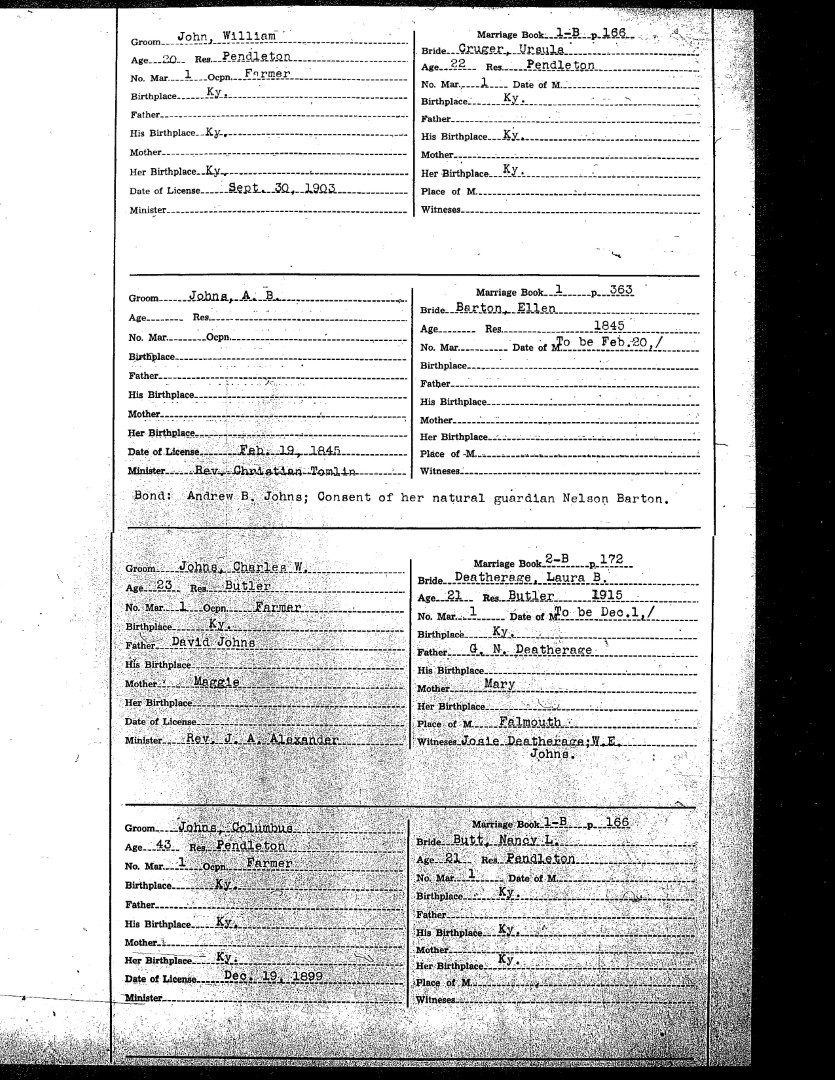 Groom John, William
Age 20 Res Pendleton
No. Mar. 1 Ocpn. Farmer
Birthplace Ky.
Father
His Birthplace Ky.
Mother
Her Birthplace Ky.
Date of License Sept. 30, 1903
Minister
Marriage Book 1-B p. 166
Bride Cruger, Ursula
Age 22 Res Pendleton
No. Mar. 1 Date of M.
Birthplace Ky.
Father
His Birthplace Ky.
Mother
Her Birthplace Ky.
Place of M.
Witnesses
Groom Johns, A. B.
Age Res
No. Mar. Ocpn.
Birthplace
Father
His Birthplace
Mother
Her Birthplace
Date of License Feb. 19, 1845
Minister Rev. Christian Tomlin
Marriage Book 1 p. 363
Bride Barton, Ellen
Age Res. 1845
No. Mar. Date of M. To be Feb.20,/
Birthplace
Father
His Birthplace
Mother
Her Birthplace
Place of M.
Witnesses
Bond: Andrew B. Johns; Consent of her natural guardian Nelson Barton.
Groom Johns, Charles W.
Age 23 Res Butler
No. Mar. 1 Ocpn. Farmer
Birthplace Ky.
Father David Johns
His Birthplace
Mother Maggie
Her Birthplace
Date of License
Minister Rev. J. A. Alexander
Marriage Book 2-B p. 172
Bride Deatherage, Laura B.
Age 21 Res Butler 1915
No. Mar. 1 Date of M. To be Dec.1,/
Birthplace Ky.
Father G. N. Deatherage
His Birthplace
Mother Mary
Her Birthplace
Place of M. Falmouth
Witnesses Josie Deatherage;W.E.
Johns.
Groom Johns, Columbus
Age 43 Res Pendleton
No. Mar. 1 Ocpn. Farmer
Birthplace Ky.
Father
His Birthplace Ky.
Mother
Her Birthplace Ky.
Date of License Dec. 19, 1899
Minister
Marriage Book 1-B p. 166
Bride Butt, Nancy L.
Age 21 Res Pendleton
No. Mar. 1 Date of M.
Birthplace Ky.
Father
His Birthplace Ky.
Mother
Her Birthplace Ky.
Place of M.
Witnesses